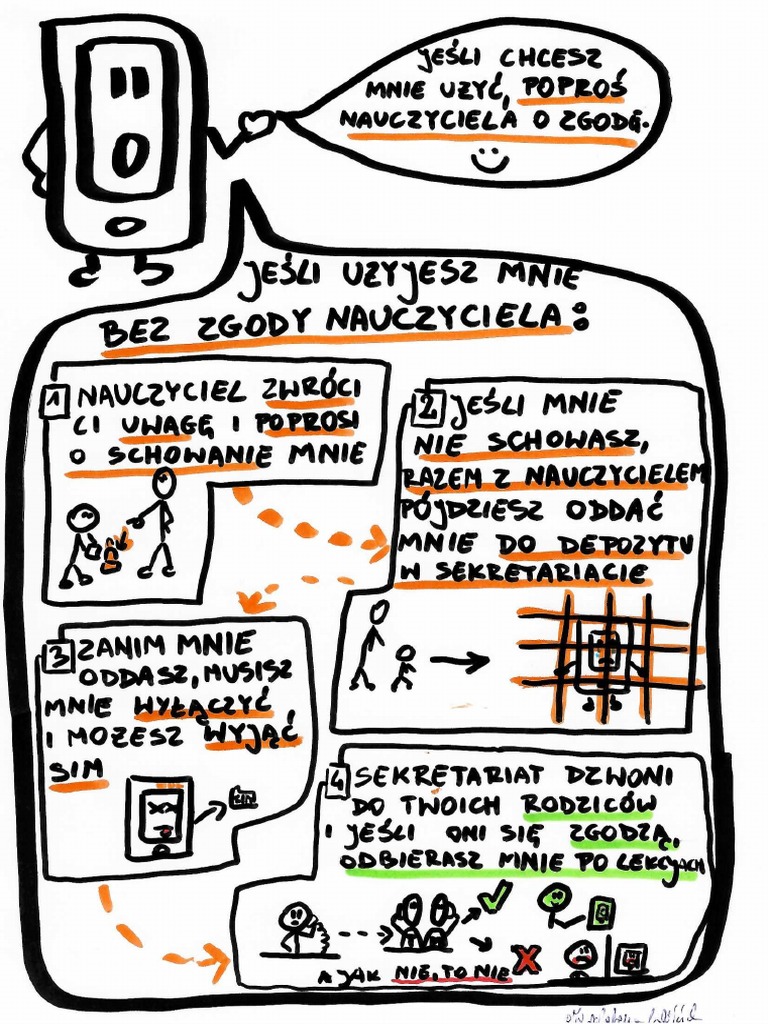 JEŚLI CHCESZ
MNIE UZYĆ, POPROŚ
NAUCZYCIELA O ZGODĘ.
JEŚLI UZYJESZ MNIE
BEZ ZGODY NAUCZYCIELA:
1 NAUCZYCIEL ZWRÓCI
CI UWAGĘ I POPROSI
O SCHOWANIE MNIE
2 JEŚLI MNIE
NIE SCHOWASZ,
RAZEM Z NAUCZYCIELEM
PÓJDZIESZ ODDAĆ
MNIE DO DEPOZYTU
W SEKRETARIACIE
3 ZANIM MNIE
ODDASZ, MUSISZ
MNIE WYŁĄCZYĆ
I MOZESZ WYJĄĆ
SIM
4 SEKRETARIAT DZWONI
DO TWOICH RODZICÓW
I JEŚLI ONI SIĘ ZGODZĄ,
ODBIERASZ MNIE PO LEKCJACH
A JAK NIE, TO NIE